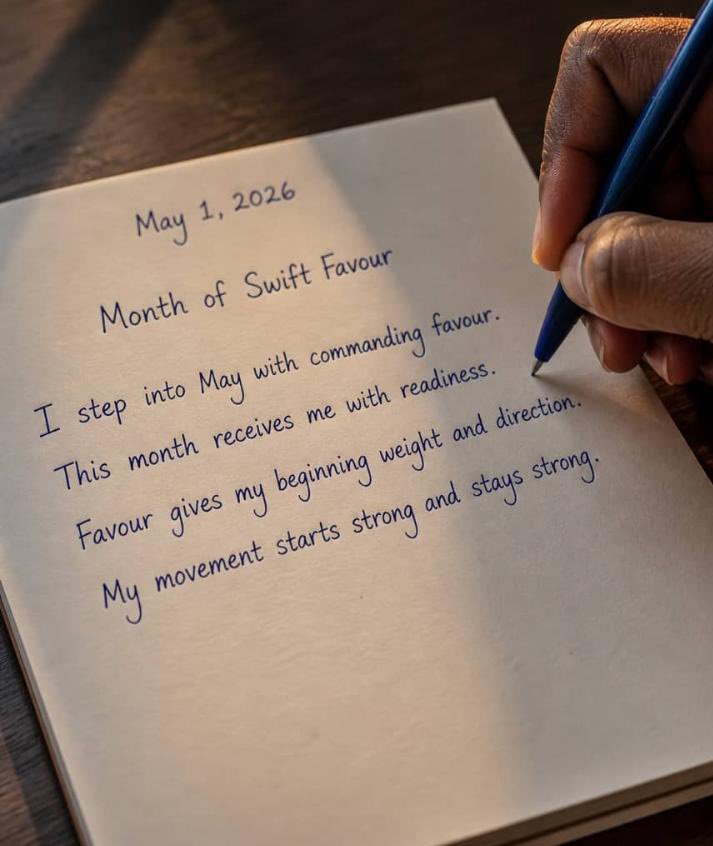 May 1, 2026
Month of Swift Favour
I step into May with commanding favour.
This month receives me with readiness.
Favour gives my beginning weight and direction.
My movement starts strong and stays strong.